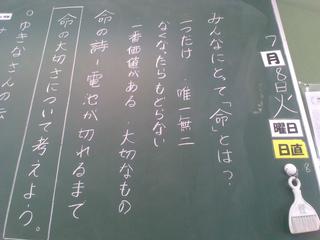 7月8日火
曜日
日直
みんなにとって「命」とは？
一つだけ・唯一無二
なくなったらもどらない
一番価値がある・大切なもの
命の詩ー電池が切れるまで
命の大切さについて考えよう。
○ゆきなさんの